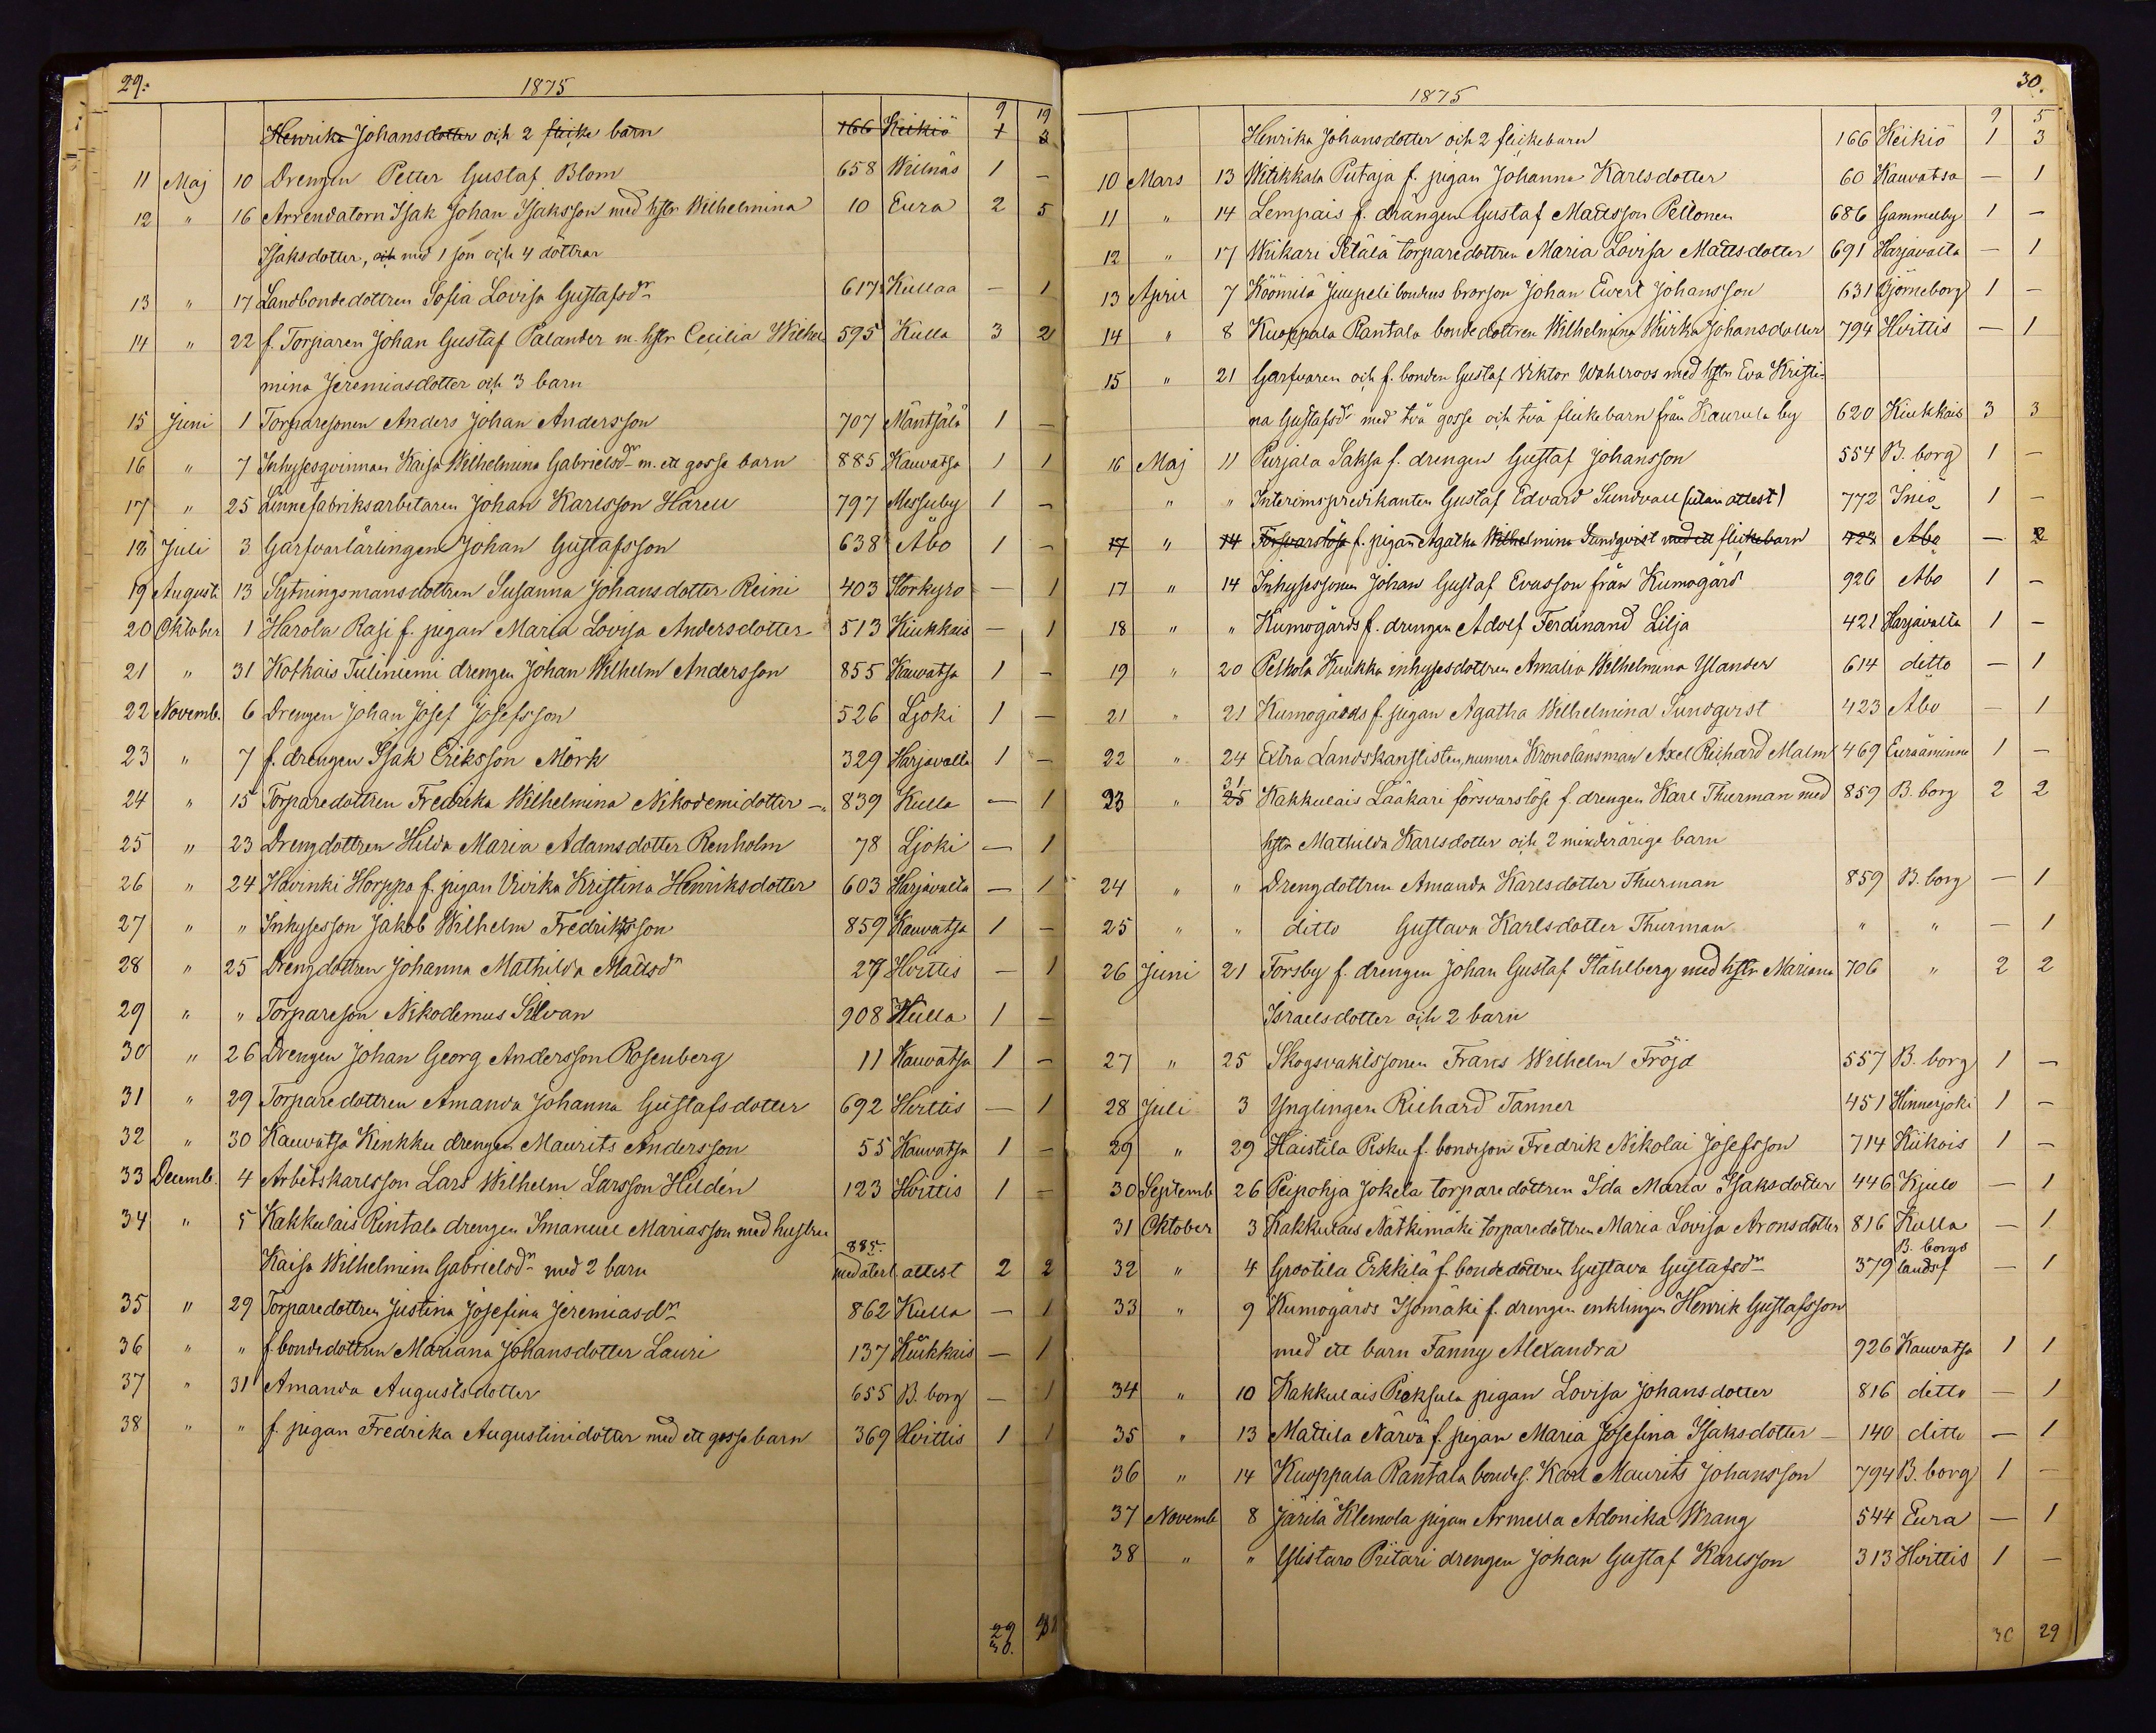 29.
1875
9 19
Henrika Johansdotter och 2 flicke barn 166 Keikiö 1 2
11 Maj 10 Drengen Petter Gustaf Blom 658 Willnäs 1 —
12 " 16 Arrendatorn Isak Johan Isaksson med hstr Wilhelmina 10 Eura 2 5
Isaksdotter, och med 1 son och 4 döttrar
13 " 17 Landbondedottren Sofia Lovisa Gustafsdr 617 Kullaa — 1
14 " 22 f. Torparen Johan Gustaf Palander m. hstr Cecilia Wilhel 595 Kulla 3 2
mina Jeremiasdotter och 3 barn
15 Juni 1 Torparesonen Anders Johan Andersson 707 Mäntsälä 1 —
16 " 7 Inhysesqvinnan Kaisa Wilhelmina Gabrielsdr m. ett gosse barn 885 Kauvatsa 1 1
17 " 25 Linnefabriksarbetaren Johan Karlsson Harell 797 Messuby 1 —
18 Juli 3 Garfvarlärlingen Johan Gustafsson 638 Åbo 1 —
19 August. 13 Sytningsmansdottren Susanna Johansdotter Reini 403 Storkyro — 1
20 Oktober 1 Harola Rasi f. pigan Maria Lovisa Andersdotter 513 Kiukkais — 1
21 " 31 Kothais Tuliniemi drengen Johan Wilhelm Andersson 855 Kauvatsa 1 —
22 Novemb. 6 Drengen Johan Josef Josefsson 526 Ljoki 1 —
23 " 7 f. drengen Isak Eriksson Mörk 329 Harjavalta 1 —
24 " 15 Torparedottren Fredrika Wilhelmina Nikodemidotter 839 Kulla — 1
25 " 23 Drengdottren Hilda Maria Adamsdotter Renholm 78 Ljoki — 1
26 " 24 Havinki Horppa f. pigan Vivika Kristina Henriksdotter 603 Harjavalta — 1
27 " " Inhysesson Jakob Wilhelm Fredriksson 859 Kauvatsa 1 —
28 " 25 Drengdottren Johanna Mathilda Mattsdr 27 Hvittis — 1
29 " " Torpareson Nikodemus Silvan 908 Kulla 1 —
30 " 26 Drengen Johan Georg Andersson Rosenberg 11 Kauvatsa 1 —
31 " 29 Torparedottren Amanda Johanna Gustafsdotter 692 Hvittis — 1
32 " 30 Kauvatsa Kinkku drengen Maurits Andersson 55 Kauvatsa 1 —
33 Decemb. 4 Arbetskarlsson Lars Wilhelm Larsson Hildén 123 Hvittis 1 —
34 " 5 Kakkulais Rintala drengen Imanuel Mariasson med hustru
885.
Kaisa Wilhelmina Gabrielsdr med 2 barn med återl. attest 2 2
35 " 29 Torparedottren Justina Josefina Jeremiasdr 862 Kulla — 1
36 " " f. bondedottren Mariana Johansdotter Lauri 137 Kiukkais — 1
37 " 31 Amanda Augustsdotter 655 B. borg — 1
38 " " f. pigan Fredrika Augustinidotter med ett gossebarn 369 Hvittis 1 1
29
30.
30.
1875
9 5
Henrika Johansdotter och 2 flickebarn 166 Keikiö 1 3
10 Mars 13 Witikkala Putaja f. pigan Johanna Karlsdotter 60 Kauvatsa — 1
11 " 14 Lempais f. drängen Gustaf Mattsson Peltonen 686 Gammelby 1 —
12 " 17 Wiikari Pätälä torparedottren Maria Lovisa Mattsdotter 691 Harjavalta — 1
13 April 7 Köömilä Juupeli bondens brorson Johan Evert Johansson 631 Björneborg 1 —
14 " 8 Kuoppala Rantala bondedottren Wilhelmina Wiirka Johansdotter 794 Hvittis — 1
15 " 21 Garfvaren och f. bonden Gustaf Viktor Wahlroos med hstr Eva Kristi-
na Gustafsdr med två gosse och två flickebarn från Kaurula by 620 Kiukkais 3 3
16 Maj 11 Purjala Saksa f. drengen Gustaf Johansson 554 B. borg 1 —
" " Interimspredikanten Gustaf Edvard Sundvall (utan attest) 772 Iniö 1 —
17 " 14 Försvarslösa f. pigan Agatha Wilhelmina Sundqvist med ett flickebarn 423 Åbo — 2
17 " 14 Inhysessonen Johan Gustaf Evasson från Kumogård 926 Åbo 1 —
18 " " Kumogårds f. drengen Adolf Ferdinand Lilja 421 Harjavalta 1 —
19 " 20 Pelhola Kuukka inhysesdottren Amalia Wilhelmina Ylander 614 ditto — 1
21 " 21 Kumogårds f. pigan Agatha Wilhelmina Sundqvist 423 Åbo — 1
22 " 24 Extra Landskanslisten, numera Kronolänsman Axel Richard Malm 469 Euraåminne 1 —
31
23 " 25 Kakkulais Lääkäri försvarslöse f. drengen Karl Thurman med 859 B. borg 2 2
hstr Mathilda Karlsdotter och 2 minderårige barn
24 " " Drengdottren Amanda Karlsdotter Thurman 859 B. borg — 1
25 " " ditto Gustava Karlsdotter Thurman " " — 1
26 Juni 21 Torsby f. drengen Johan Gustaf Ståhlberg med hstr Mariana 706 " 2 2
Israelsdotter och 2 barn
27 " 25 Skogsvaktssonen Frans Wilhelm Fröjd 557 B. borg 1 —
28 Juli 3 Ynglingen Richard Tanner 451 Hinnerjoki 1 —
29 " 29 Haistila Pisku f. bondeson Fredrik Nikolai Josefsson 714 Kiikois 1 —
30 Septemb 26 Peipohja Jokela torparedottren Ida Maria Isaksdotter 446 Kjulo — 1
31 Oktober 3 Kakkulais Nätkimäki torparedottren Maria Lovisa Aronsdotter 816 Kulla — 1
B. borgs
32 " 4 Grootila Erkkilä f. bondedottren Gustava Gustafsdr 379 landsf — 1
33 " 9 Kumogårds Isomäki f. drengen enklingen Henrik Gustafsson
med ett barn Fanny Alexandra 926 Kauvatsa 1 1
34 " 10 Kakkulais Pieksula pigan Lovisa Johansdotter 816 ditto — 1
35 " 13 Mattila Närvä f. pigan Maria Josefina Isaksdotter — 140 ditto — 1
36 " 14 Kuoppala Rantala bondes. Karl Maurits Johansson 794 B. borg 1 —
37 Novemb 8 Järilä Klemola pigan Armella Adonika Wrang 544 Eura — 1
38 " " Ylistaro Pritari drengen Johan Gustaf Karlsson 313 Hvittis 1 —
30 29